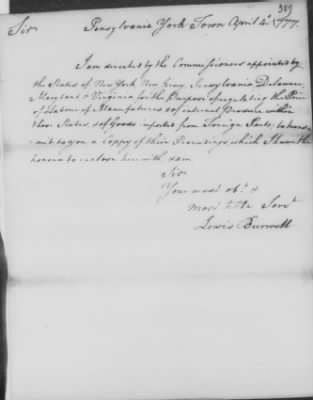 389
Sir Pensylvania York Town April 4th 1777.
I am directed by the Commissioners appointed by
the States of New York New Jersey, Pensylvania Delaware,
Maryland & Virginia for the Purpose of regulating the Price
of Labour of Manufactures & of internal Produce within
those States & of Goods imported from Foreign Parts, to trans
mit to you a Coppy of their Proceedings which I have the
honour to inclose herewith & am
Sir
Your most obt. &
most hble Servt.
Lewis Burwell